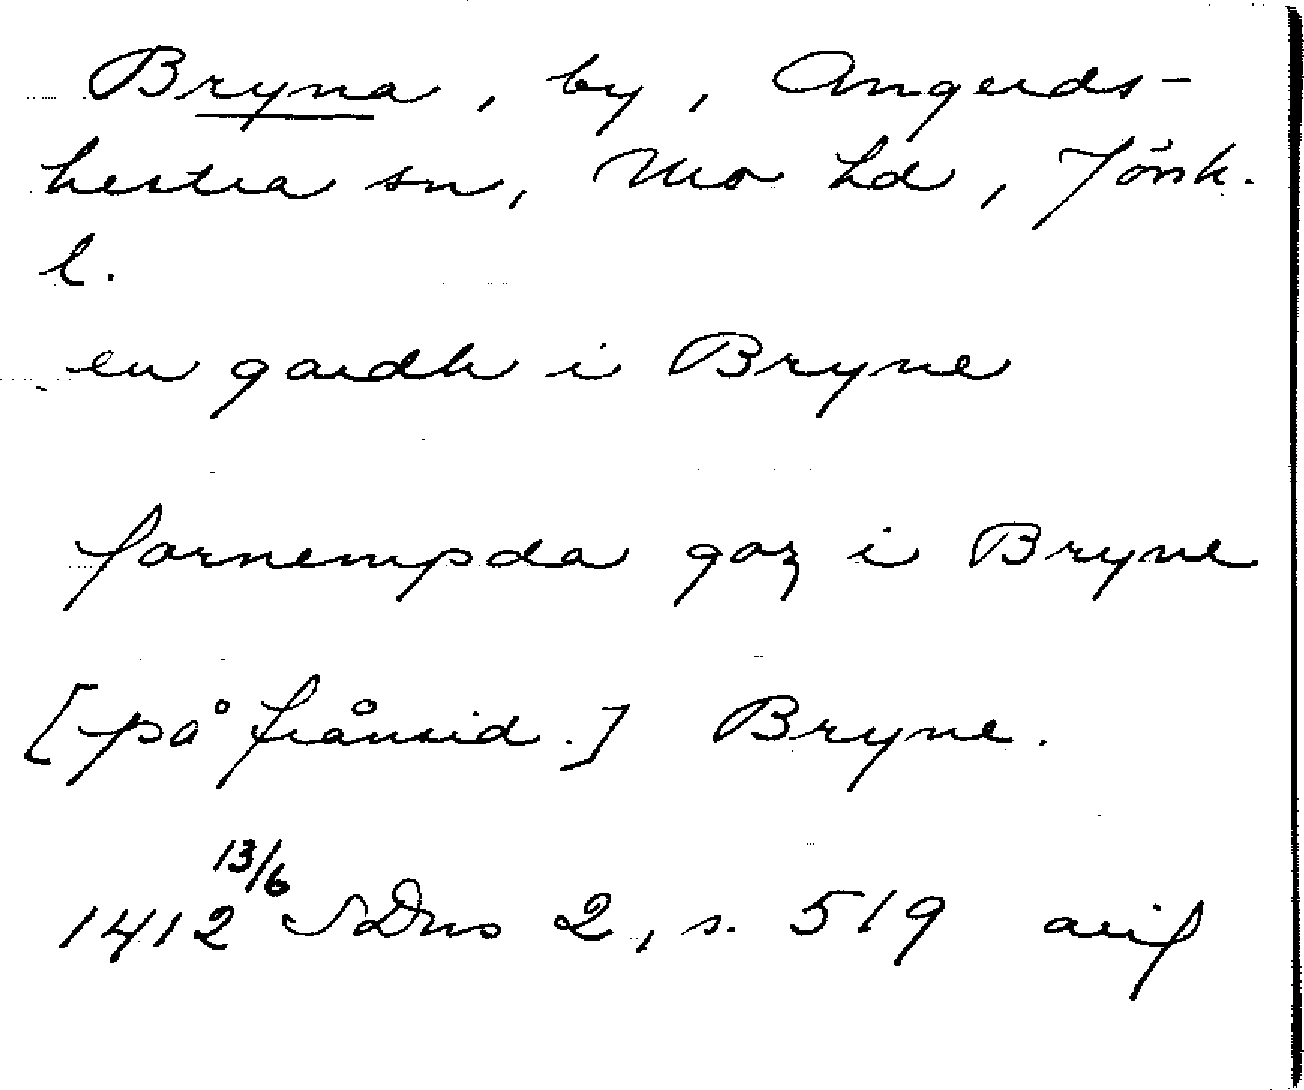 Bryna, by, Angerds-
hestra sn, Mo hd, Jönk.
l.
en gardh i Bryne
fornempda goz i Bryne
[på frånsid.] Bryne.
1412 13/6 SDns 2, s. 519